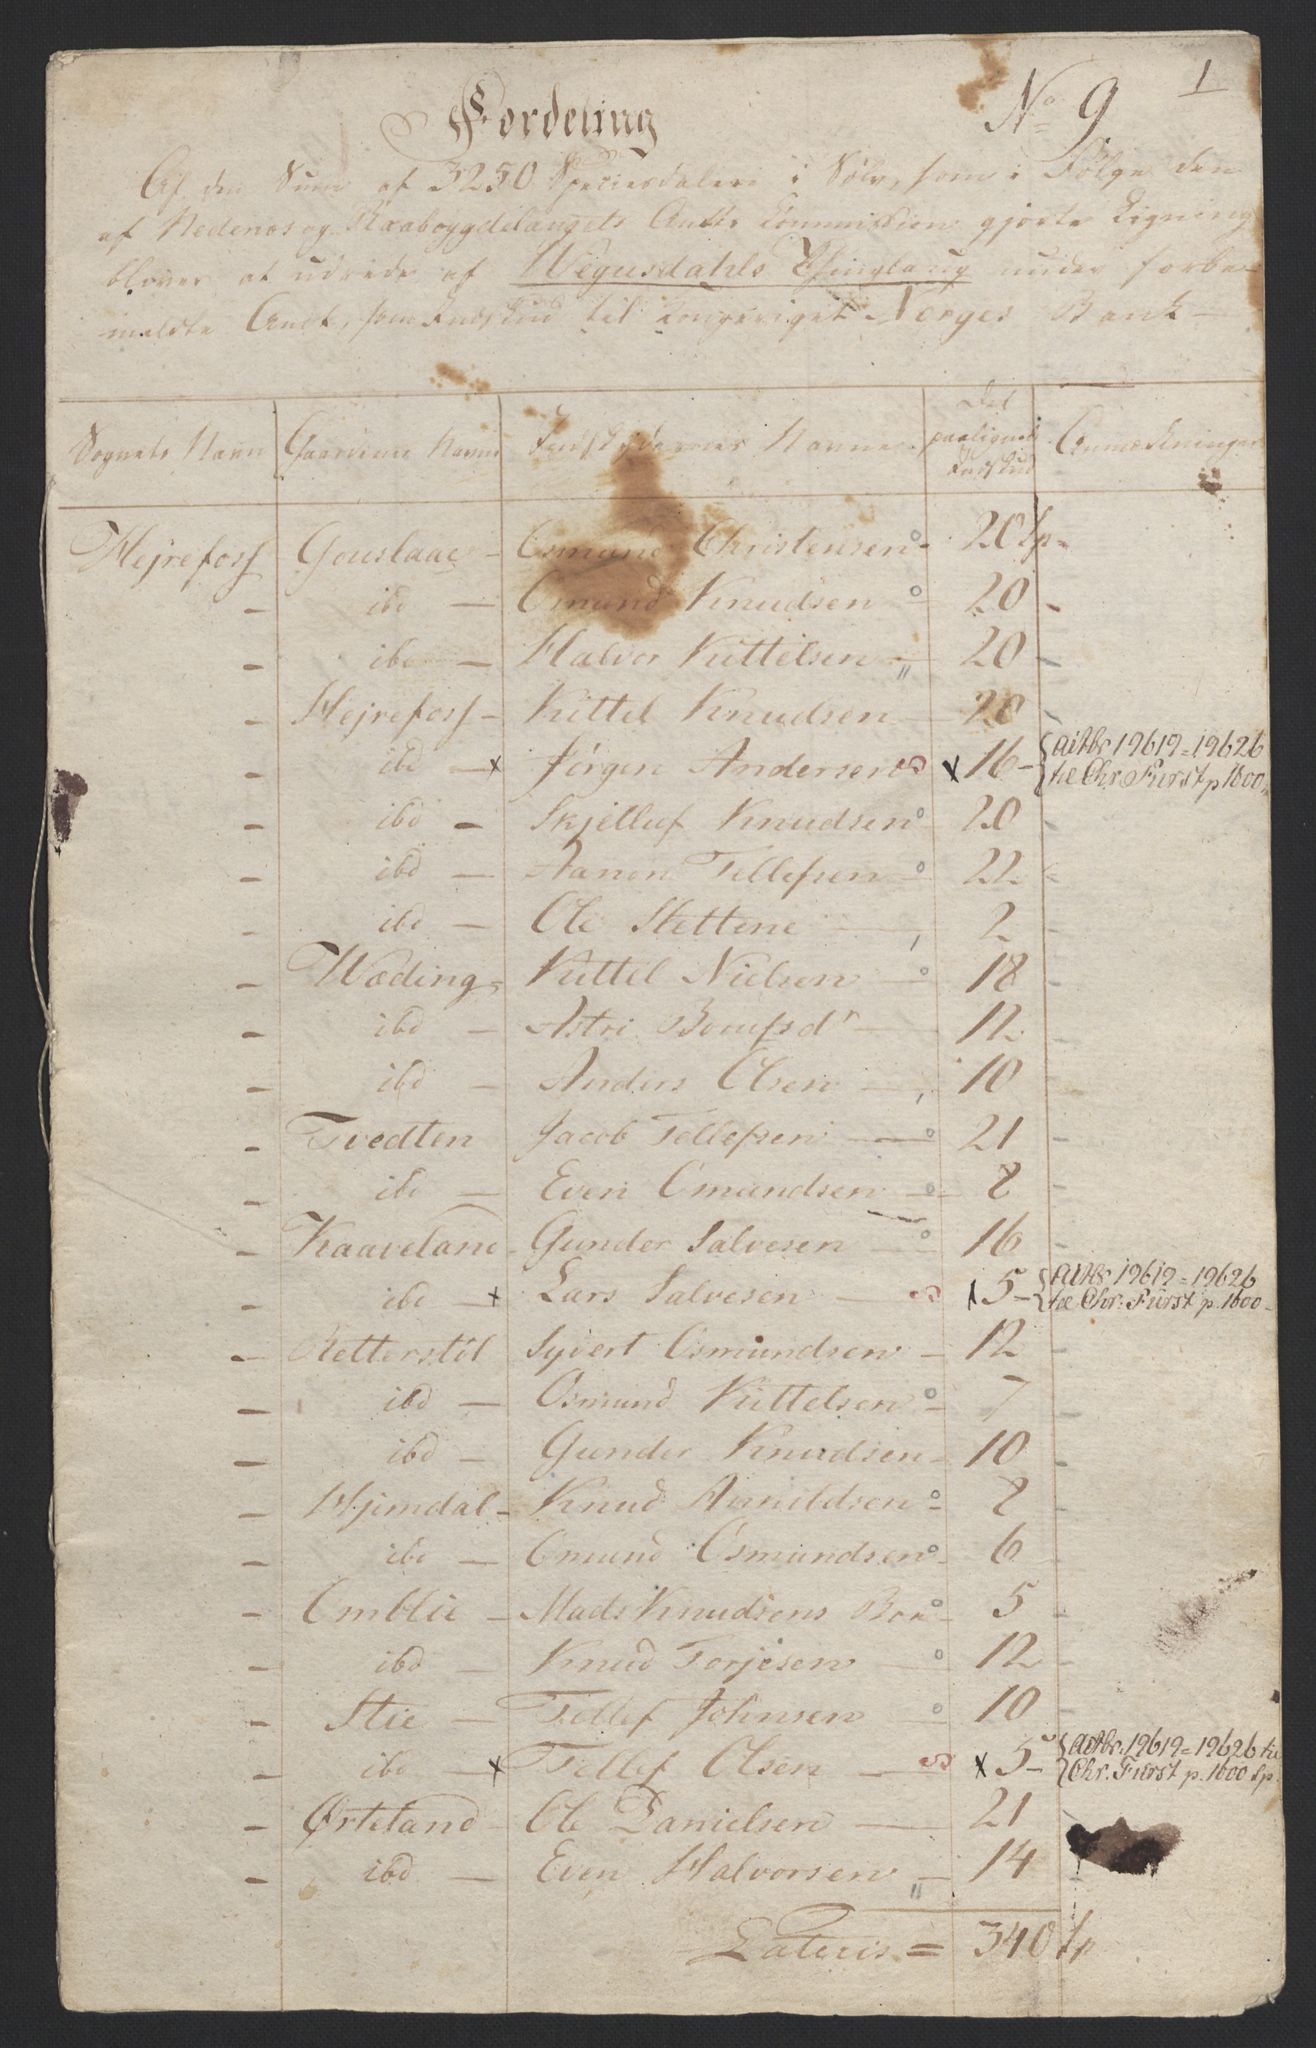 1
Fordeling No 9
Af den Sum af 3250 Speciesdaler i Sølv, som i Følge den
af Nedenes og Raabøygdelaugets Amts Commission gjorte Ligning
bliver at udrede af Wegusdahls Thinglaug under forbe-
meldte Amt, som Indskud til Kongeriget Norges Bank
Sognets Navn Gaardenes Navne Indskydernes Navne Det paalignede Indskud Anmærkninger
Hejrefoss Gouslaae - Osmund Christensen - 20 Sp -
- ibd - Omund Knudsen - 20 -
- ibd - Halvor Kittelsen - 20 -
- Hejrefoss - Kittel Knudsen - 20 -
- ibd - x Jörgen Andersen x 16 - { Actbr. 19619 = 19626
til Chr. Fürst p. 1600
- ibd - Skjelluf Knudsen 20 -
- ibd - Aanon Tellefsen - 22 -
- ibd - Ole Stettene - 2 -
- Wæding - Kittel Nielsen - 18 -
- ibd - Astri dr - 12 -
- ibd - Anders Olsen - 10 -
- Tvedten Jacob Tellefsen - 21 -
- ibd - Even Omundsen - 8 -
- Kaaveland - Gunder Salvesen - 16 -
- ibd - x Lars Salvesen - x 5 - { Actbr. 19619 = 19626
til Chr. Fürst p. 1600 -
- Retterstöl Syvert Osmundsen - 12 -
- ibd - Osmund Kittelsen - 7 -
- ibd - Gunder Knudsen - 10 -
- Hjimdal - Knud Avnildsen - 8 -
- ibd - Omund Osmundsen - 6 -
- Omblie - Mads Knudsens Bo - 5 -
- ibd - Knud Torjesen - 12 -
- Stie - Tellef Johnsen 10 -
- ibd - x Tellef Olsen - x 5 - { Actbr. 19619 = 19626 til
Chr. Fürst p. 1600 Sp.
- Ørteland - Ole Danielsen - 21 -
- ibd - Even Halvorsen - 14 -
Lateris = 340 Sp